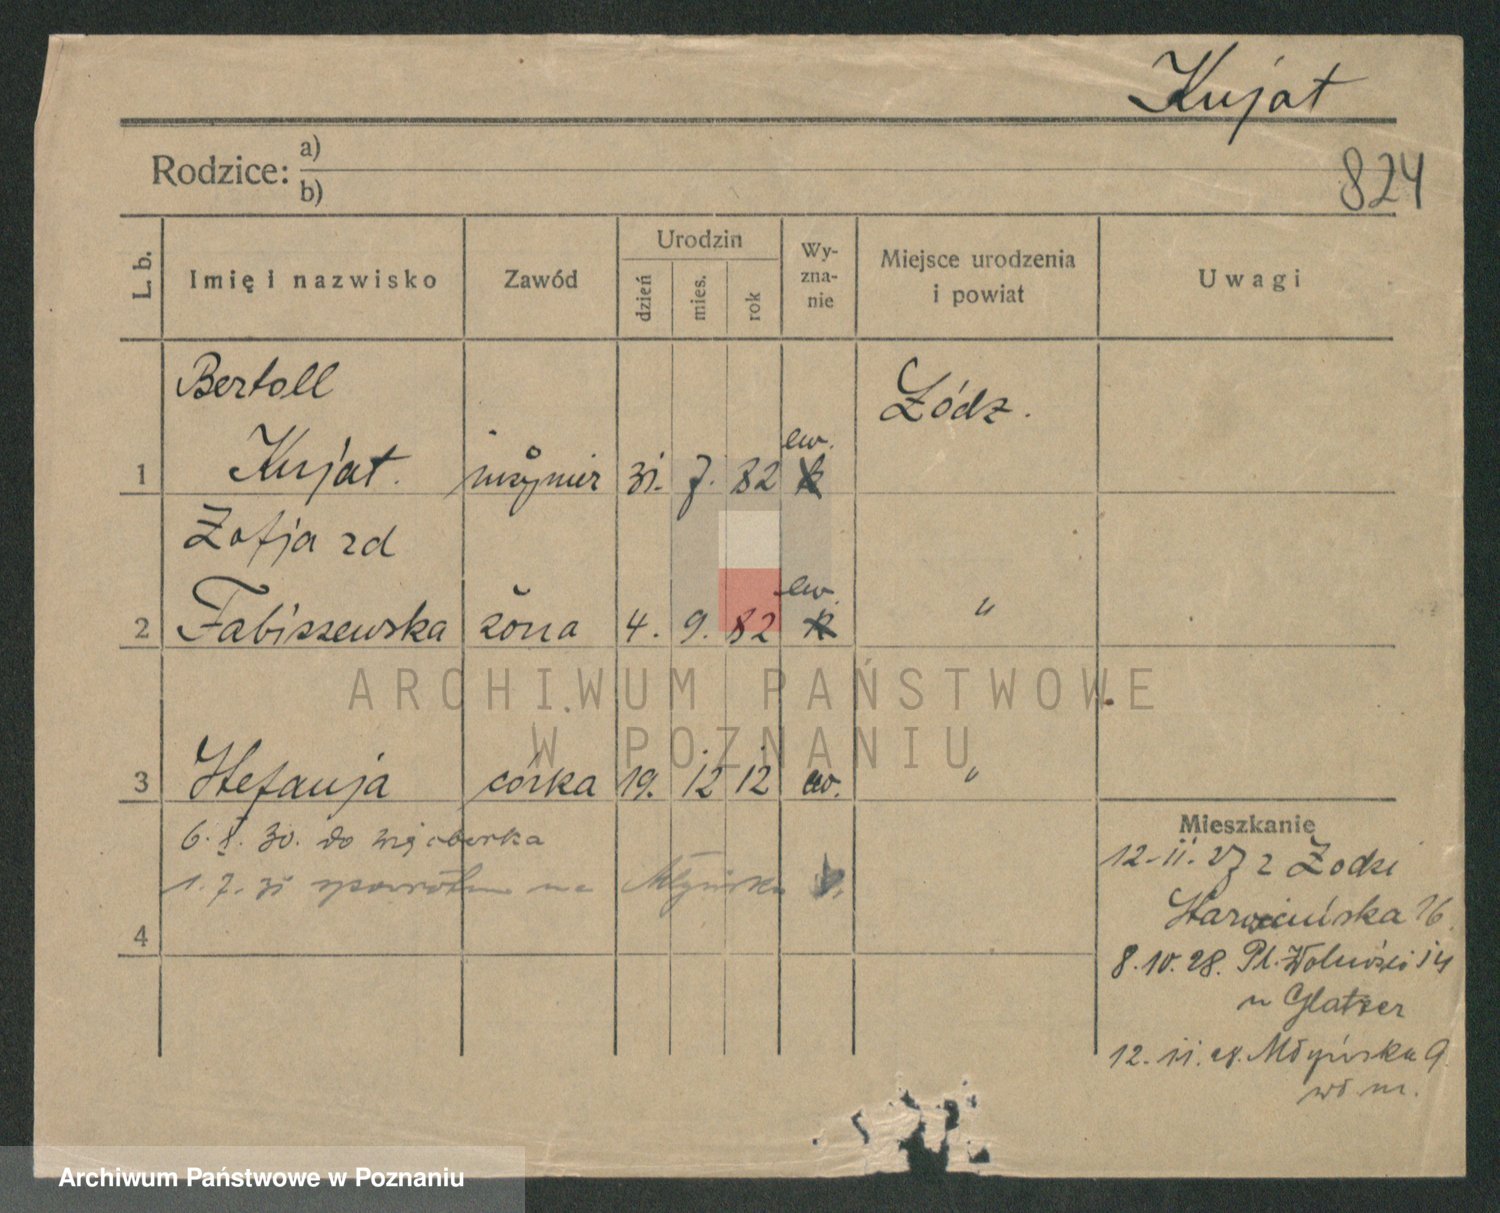 Kujat
824
Rodzice: a)
b)
L. b. Imię i nazwisko Zawód Urodzin dzień mies. rok Wy-zna-nie Miejsce urodzenia i powiat Uwagi
Bertoll Łódz.
1 Kujat. inżynier 31. 7. 82 ew.
Zofja zd
2 Fabiszewska żona 4. 9. 82 ew. "
ARCHIWUM PAŃSTWOWE
W POZNANIU
3 Stefanja córka 19. 12 12 ew. "
Mieszkanie
6. 8. 30. do
12-11. 27 z Łodzi
1. 7. 31 zpowrotem na Młyńska
26
4
8. 10. 28. Pl. Wolności 14
u Glatzer
12. 11. 28. Młyńska 9
wł m.
Archiwum Państwowe w Poznaniu